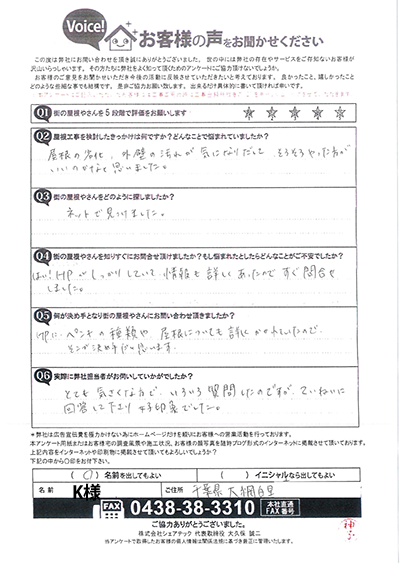 Voice!
お客様の声をお聞かせください
この度は弊社にお問い合わせを頂き誠にありがとうございました。世の中には弊社の存在やサービスをご存知ないお客様が
沢山いらっしゃいます。その方たちに弊社をよく知って頂くためのアンケートにご協力頂けないでしょうか。
お客様のご意見をお聞かせいただき今後の活動に反映させていただきたいと考えております。良かったこと、嬉しかったこと
どのような些細な事でも結構です。是非ご協力お願い致します。出来るだけ具体的に書いて頂ければ幸いです。
Q1 街の屋根やさんを5段階で評価をお願いします
Q2 屋根工事を検討したきっかけは何ですか？どんなことで悩まれていましたか？
屋根の劣化、外壁の汚れが気になりだして、そろそろやった方が
いいのかなと思いました。
Q3 街の屋根やさんをどのように探しましたか？
ネットで見つけました。
Q4 街の屋根やさんを知りすぐにお問合せ頂けましたか？もし悩まれたとしたらどんなことがご不安でしたか？
はい！HPがしっかりしていて、情報も詳しくあったのですぐ問合せ
しました。
Q5 何が決め手となり街の屋根やさんにお問い合わせ頂きましたか？
HPに、ペンキの種類や、屋根についても詳しくかかれていたので、
そこが決め手だと思います。
Q6 実際に弊社担当者がお伺いしていかがでしたか？
とても気さくな方で、いろいろ質問したのですが、ていねいに
回答して下さり好印象でした。
＊弊社は広告宣伝費を極力かけない為にホームページだけを絞りにお客様への営業活動を行っております。
本アンケート用紙またはお客様ご自宅の調査風景や施工状況、お客様の顔写真を随時ブログ形式のインターネットに掲載させて頂いております。
上記内容をインターネットや印刷物に掲載させて頂いてもよろしいでしょうか？
下記の中から〇印をお付け下さい。
(〇) 名前を出してもよい ( ) イニシャルなら出してもよい
名前 K様 ご住所 千葉県大網白里
FAX 0438-38-3310 本社直通 FAX番号
ご協力ありがとうございました。
株式会社シェアテック 代表取締役 大久保 誠二
当アンケートで取得したお客様の個人情報は関係法規に基づき厳正に管理いたします。